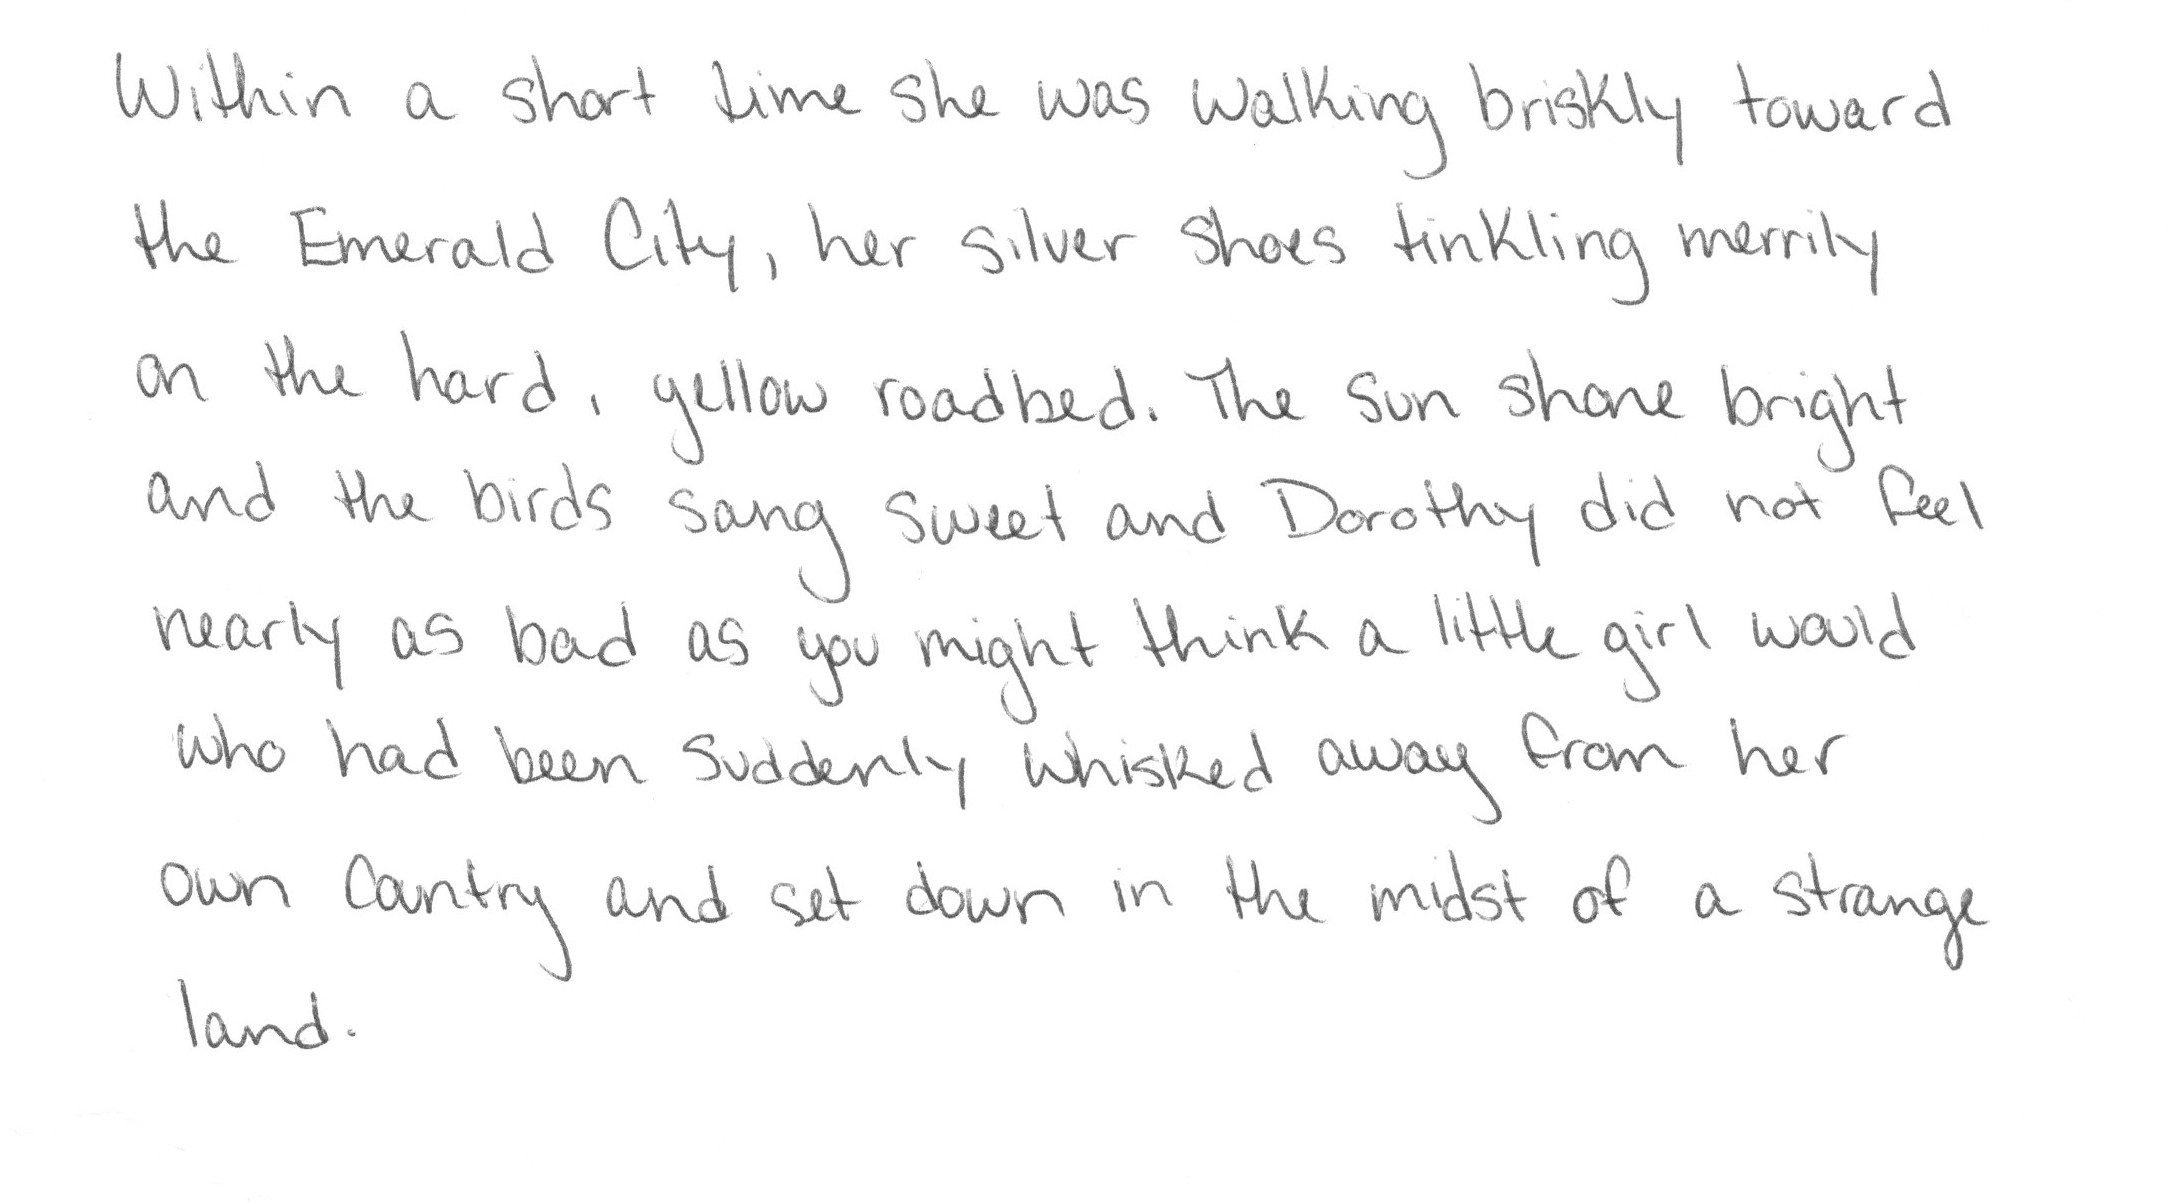 Within a short time she was walking briskly toward
the Emerald City, her silver shoes tinkling merrily
on the hard, yellow roadbed. The sun shone bright
and the birds sang sweet and Dorothy did not feel
nearly as bad as you might think a little girl would
who had been suddenly whisked away from her
own country and set down in the midst of a strange
land.